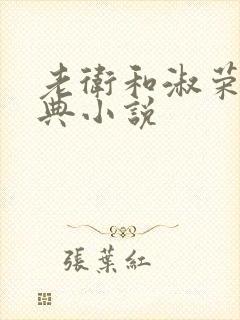 老衛和淑荣
典小說
張葉紅